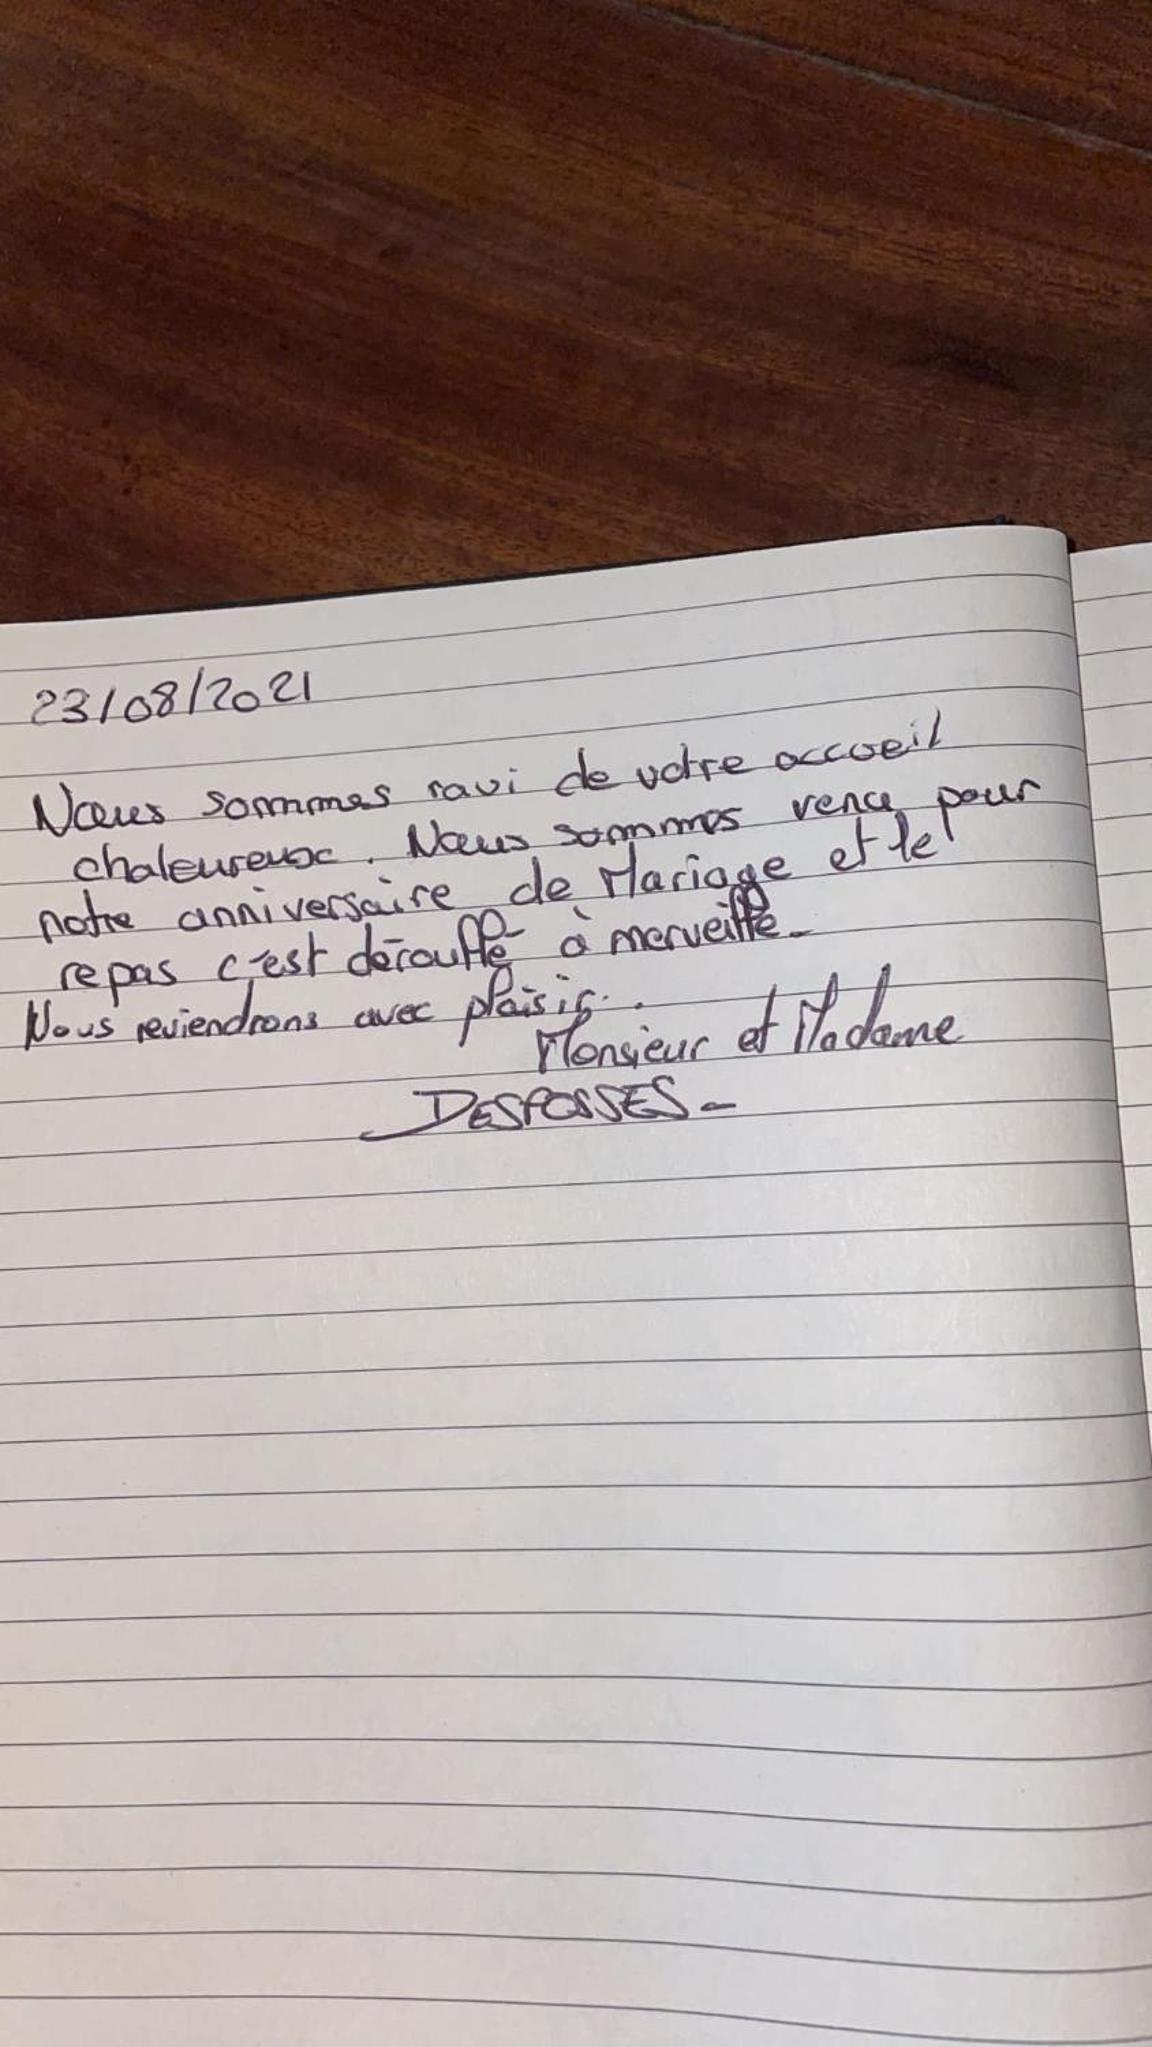 23/08/2021
Nous sommes ravi de votre accueil
chaleureux. Nous sommes venu pour
notre anniversaire de Mariage et le
repas c'est déroullé à merveille.
Nous reviendrons avec plaisir.
Monsieur et Madame
DESFOSSES